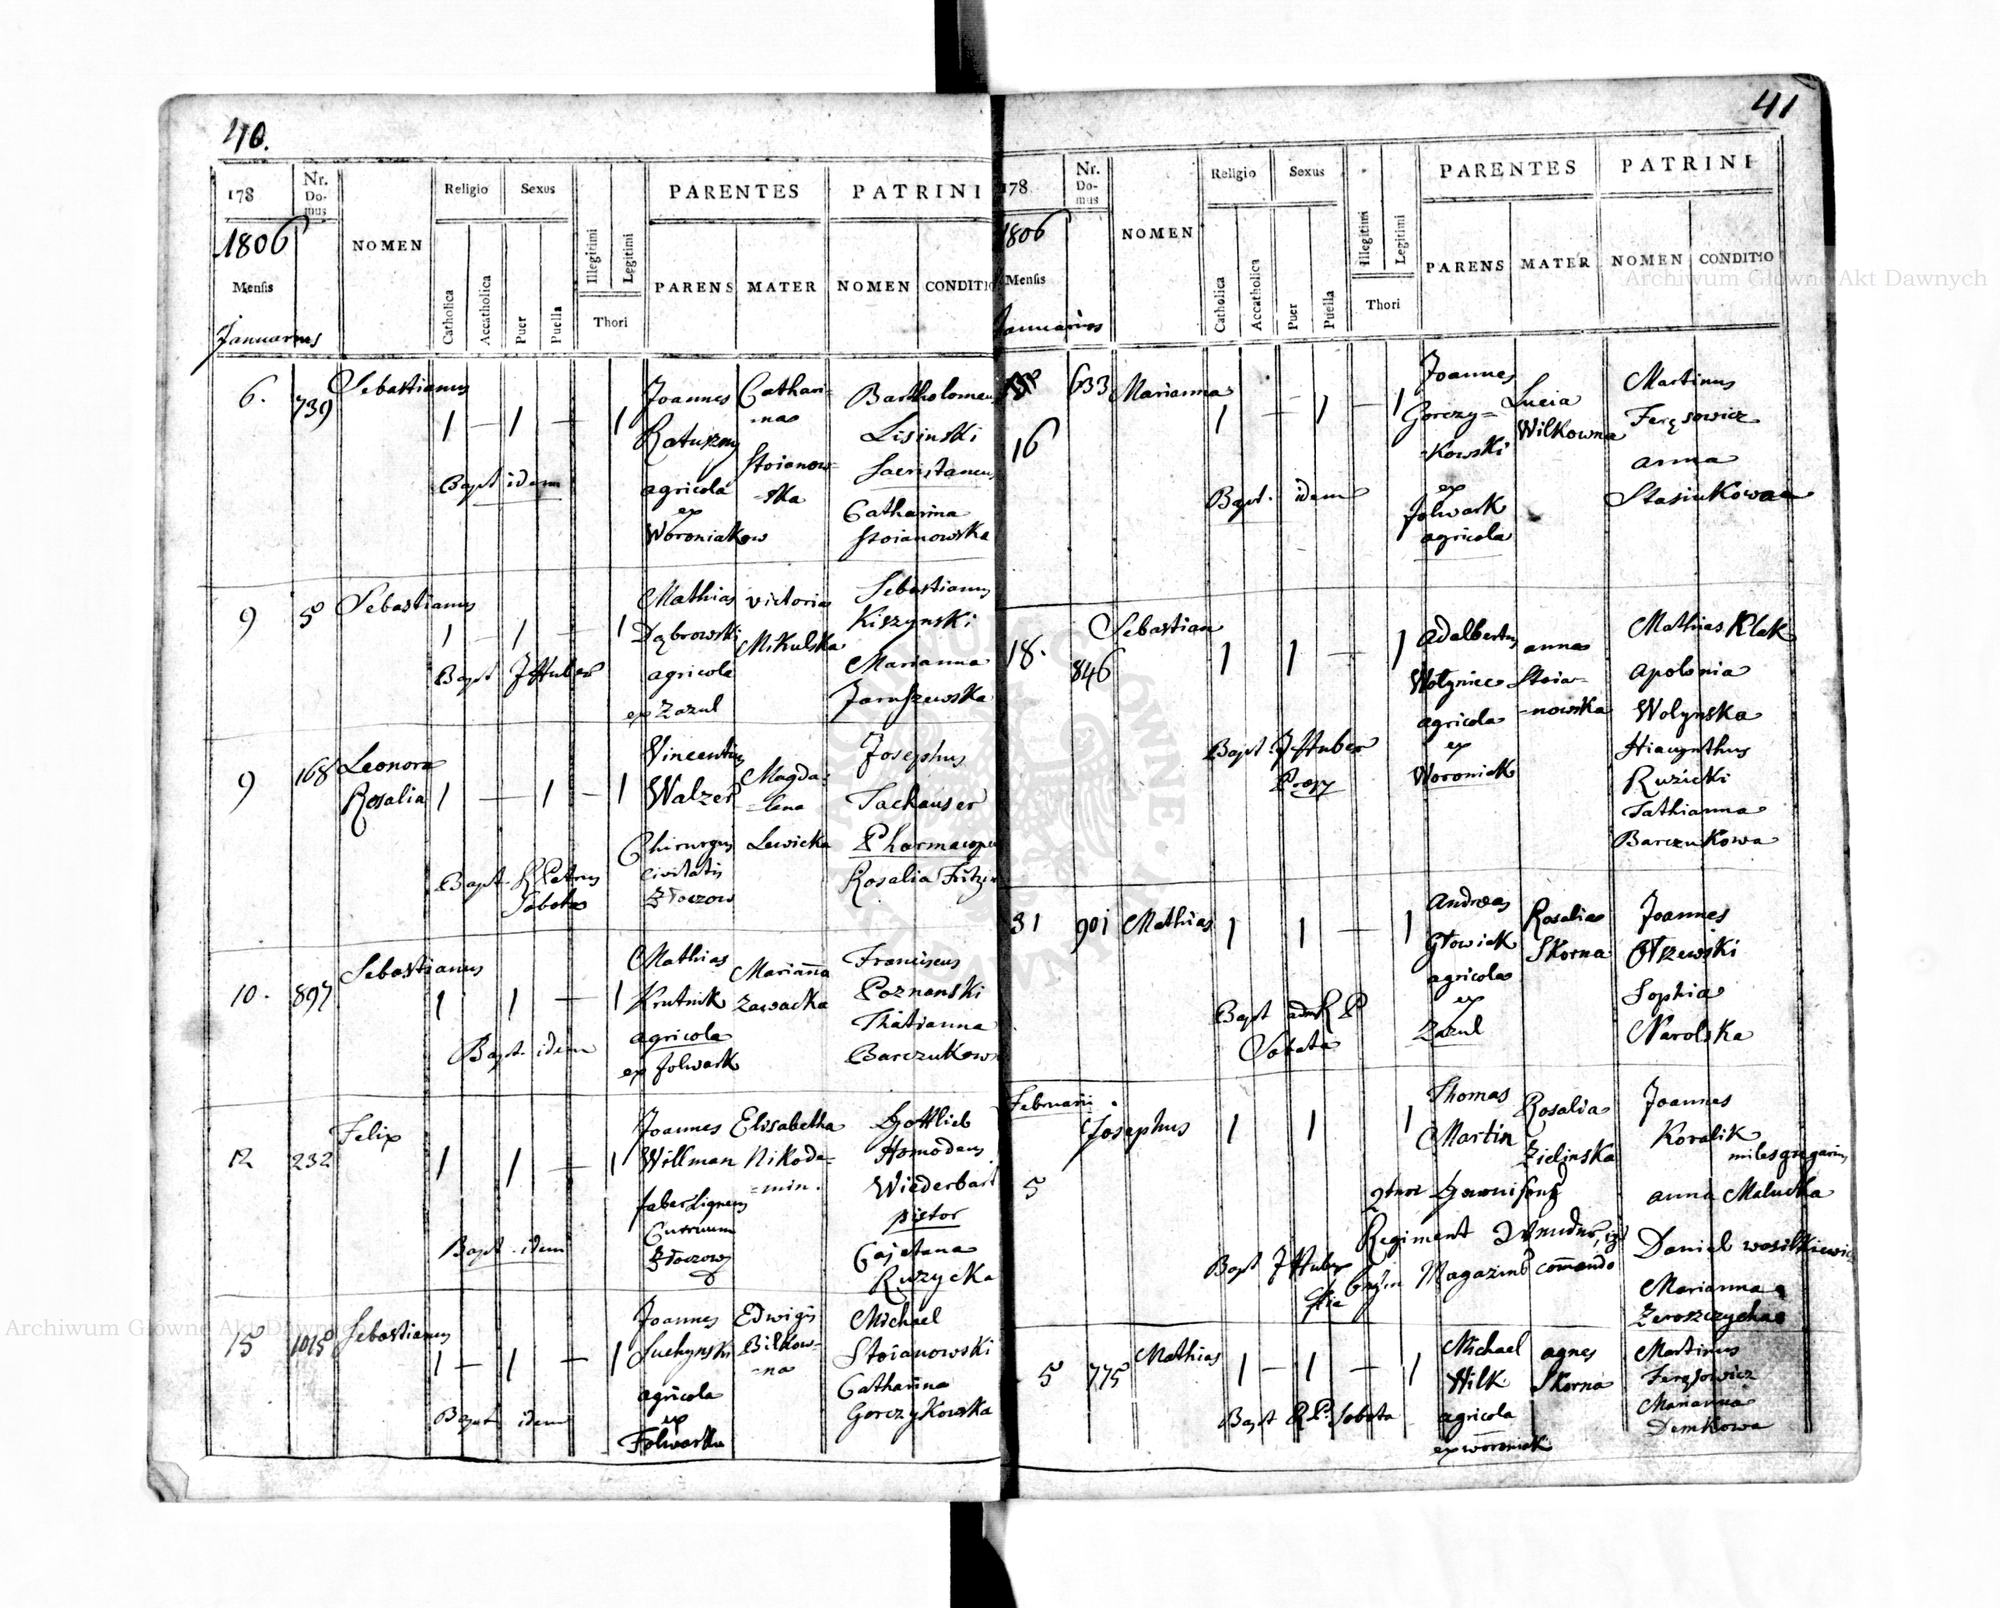 40.
178
Nr. Do- mus
NOMEN
Religio
Sexus
PARENTES
PATRINI
1806
Mensis
Catholica
Accatholica
Puer
Puella
Illegitimi
Legitimi
Thori
PARENS
MATER
NOMEN
CONDITIO
Januarius
6.
739
Sebastianus
1 1 1
Bapt idem
Joannes
Ratuszny
agricola
ex
Woroniakow
Cathari-
na
Stoianow-
ska
Bartholomeus
Lisinski
Catharina
Stoianowska
9
5
Sebastianus
1 1 1
Bapt J Huber
Mathias
Dąbrowski
agricola
ex Zazul
victoria
Mikulska
Sebastianus
Kiszynski
Marianna
Jaruszewska
9
168
Leonora
Rosalia
1 1 1
Bapt. R Petrus
Sobota
Vincentius
Walzer
Chirurgus
civitatis
Złoczow
Magda-
lena
Lewicka
Josephus
Tachauser
Rosalia
10.
897
Sebastianus
1 1 1
Bapt. idem
Mathias
Krutnik
agricola
ex folwark
Marianna
Zawacka
Franciscus
Poznanski
Thatianna
Barczukowa
12
232
Felix
1 1 1
Bapt. idem
Joannes
Willman
faber
Złoczow
Elisabetha
Nikode-
min.
Gottlieb
pistor
Cajetana
Ruzycka
15
1015
Sebastianus
1 1 1
Bapt idem
Joannes
Suchynski
agricola
ex
Folwarku
Edwigis
Bilkow-
na
Michael
Stoianowski
Catharina
Gorczykowska
41
178
Nr. Do- mus
NOMEN
Religio
Sexus
PARENTES
PATRINI
1806
Mensis
Catholica
Accatholica
Puer
Puella
Illegitimi
Legitimi
Thori
PARENS
MATER
NOMEN
CONDITIO
Januarius
16
633
Marianna
1 1 1
Bapt. idem
Joannes
Gorczy-
kowski
ex
folwark
agricola
Lucia
Wilkowna
Martinus
Feręsowicz
anna
Stasiukowa
18.
846
Sebastian
1 1 1
Bapt. J Huber
Adalbertus
Wołyniec
agricola
ex
Woroniak
anna
Stoia-
nowska
Mathias Klak
apolonia
Wolynska
Hiacynthus
Ruzicki
Tathianna
Barczukowa
31
901
Mathias
1 1 1
Bapt adm R P
Sobota
Andreas
Głowiak
agricola
ex
Zazul
Rosalia
Skorna
Joannes
Olszewski
Sophia
Narolska
Februarii
5
Josephus
1 1 1
Bapt J Huber
Thomas
Martin
Regiment
Magazins comando
Rosalia
Zielinska
Joannes
Koralik
miles gregarius
anna Malucka
Daniel wasilkiewicz
Marianna
5
775
Mathias
1 1 1
Bapt R P. Sobota
Michael
Wilk
agricola
ex woroniak
agnes
Skorna
Martinus
Feręsowicz
Marianna
Demkowa
Archiwum Główne Akt Dawnych
Archiwum Główne Akt Dawnych